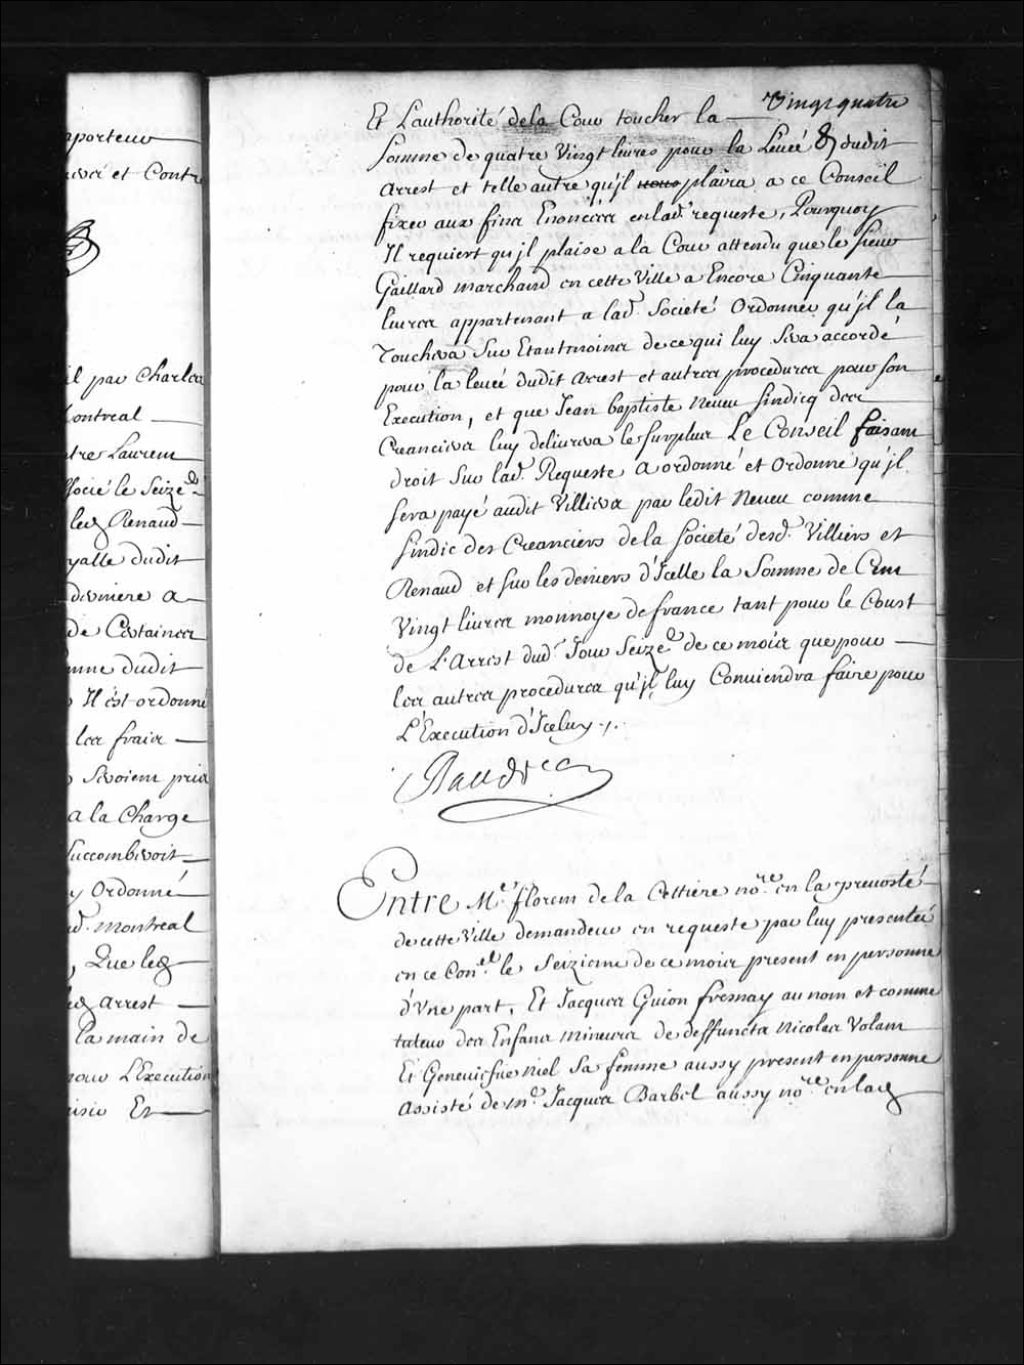 pporteur
iver et Contre
il par Charles
Montreal
tre Laurem
ssocié le Seize.e
led. Renaud
yalle dudit
derniere a
de Certaines
mme dudit
Il est ordonné
les frais
Seroiem pris
a la Charge
Succomberoit
Ordonné
d. montreal
, Que led.
led. arrest
la main de
pour L'Execution
Et
Vingt quatre
Et L'authorité dela Cour toucher la
Somme de quatre Vingt liures pour la Leueé dudit
arrest et telle autre qu'jl nous plaira a ce Conseil
fixer aux fins Enonceés enlad. requeste, Pourquoy
Il requiert qu'jl plaise a la Cour attendu que le sieur
Gaillard marchand en cette Ville a Encore Cinquante
liures appartenant a lad. Societé Ordonner qu'jl la
Touchera Sur Etantmoins de ce qui luy Sera accordé
pour la leueé dudit arrest et autres procedures pour son
Execution, et que Jean baptiste neueu sindicq des
Creanciers luy deliurera le surplus Le Conseil faisam
droit Sur lad. Requeste a ordonné et Ordonne qu'jl
sera payé audit Villiers par ledit neueu comme
sindic des Creanciers de la societé desd. Villiers et
Renaud et sur les deniers d'Icelle la Somme de Cem
Vingt liures monnoye de france tant pour le Coust
de L'Arrest dud. Jour Seize.e de ce mois que pour
les autres procedures qu'jl luy Conuiendra faire pour
L'Execution d'Iceluy ./.
Raudot
Entre M.e florem de la Cettiere no.re en la preuosté
de cette Ville demandeur en requeste par luy presenteé
en ce Con.el le Seizieme de ce mois present en personne
d'Vne part, Et Jacques Guion fresnay au nom et comme
tuteur des Enfans mineurs de deffuncts nicolas Volam
Et Geneuiefue niel Sa femme aussy present en personne
assisté de m.e Jacques Barbel aussy no.re en lad.